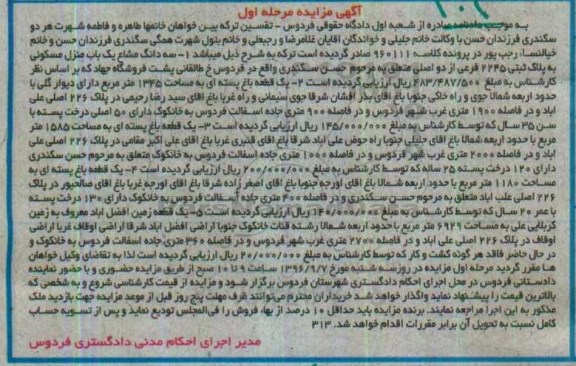 آگهی مزایده مرحله اول
به موجب دادنامه صادره از شعبه اول دادگاه حقوقی فردوس - تقسیم ترکه بین خواهان خانمها طاهره و فاطمه شهرت هر دو
سکندری فرزندان حسن با وکالت خانم جلیلی و خواندگان آقایان غلامرضا و رجبعلی و خانم بتول شهرت همگی سکندری فرزندان حسن و خانم
خیالنسا، رجب پور در پرونده کلاسه ۹۶۰۱۱۱ صادر گردیده است ترکه به شرح ذیل میباشد ۱- سه دانگ مشاع یک باب منزل مسکونی
به پلاک ثبتی ۲۲۴۵ فرعی از دو اصلی متعلق به مرحوم حسن سکندری واقع در فردوس خ طالقانی پشت فروشگاه جهاد که بر اساس نظر
کارشناس به مبلغ ۴۸۳/۴۸۷/۵۰۰ ریال ارزیابی گردیده است ۲- یک قطعه باغ پسته ای به مساحت ۱۳۴۵ متر مربع دارای دیوار گلی با
حدود اربعه شمالا جوی و راه خاکی جنوبا باغ آقای بذر افشان شرقا جوی سیمانی و راه غربا باغ آقای سید رضا رحیمی در پلاک ۲۲۶ اصلی علی
آباد و در فاصله ۱۹۰۰ متری غرب شهر فردوس و در فاصله ۹۰۰ متری جاده آسفالت فردوس به خانکوک دارای ۵۰ اصلی درخت پسته با
سن ۳۵ سال که توسط کارشناس به مبلغ ۱۴۵/۰۰۰/۰۰۰ ریال ارزیابی گردیده است ۳- یک قطعه باغ پسته ای به مساحت ۱۵۸۵ متر
مربع با حدود اربعه شمالا باغ آقای جلیلی جنوبا راه حوض علی آباد شرقا باغ آقای قنبری غربا باغ آقای علی اکبر مقامی در پلاک ۲۲۶ اصلی علی
آباد و در فاصله ۲۰۰۰ متری غرب شهر فردوس و در فاصله ۱۰۰۰ متری جاده آسفالت فردوس به خانکوک متعلق به مرحوم حسن سکندری
دارای ۱۲۰ درخت پسته ۲۵ ساله که توسط کارشناس به مبلغ ۲۰۰/۰۰۰/۰۰۰ ریال ارزیابی گردیده است ۴- یک قطعه باغ پسته ای به
مساحت ۱۱۸۰ متر مربع با حدود اربعه شمالا باغ آقای اورجه جنوبا باغ آقای اصغر زاده شرقا باغ آقای اورجه غربا باغ آقای صالحپور در پلاک
۲۲۶ اصلی علیآباد متعلق به مرحوم حسن سکندری و در فاصله ۴۰۰ متری جاده آسفالت فردوس به خانکوک دارای ۱۳۰ درخت پسته
با عمر ۲۰ سال که توسط کارشناس به مبلغ ۱۴۰/۰۰۰/۰۰۰ ریال ارزیابی گردیده است ۵- یک قطعه زمین افضل آباد معروف به زمین
کربلایی علی به مساحت ۶۹۲۹ متر مربع با حدود اربعه شمالا رشته قنات خانکوک جنوبا اراضی افضل آباد شرقا اراضی اوقاف غربا اراضی
اوقاف در پلاک ۲۲۶ اصلی علی آباد و در فاصله ۲۷۰۰ متری غرب شهر فردوس و در فاصله ۳۶۰ متری جاده آسفالت فردوس به خانکوک و
در حال حاضر فاقد هر گونه کشت و کار که توسط کارشناس به مبلغ ۲۰/۰۰۰/۰۰۰ ریال ارزیابی گردیده است لذا به تقاضای وکیل خواهان
ها مقرر گردید مرحله اول مزایده در روز سه شنبه مورخ ۱۳۹۶/۹/۷ ساعت ۹ تا ۱۰ صبح از طریق مزایده حضوری و با حضور نماینده
دادستانی فردوس در محل اجرای احکام دادگستری شهرستان فردوس برگزار شود و مزایده از قیمت کارشناسی شروع و به شخصی که
بالاترین قیمت را پیشنهاد نماید واگذار خواهد شد خریداران محترم می‌توانند ظرف مهلت پنج روز قبل از موعد مزایده جهت بازدید ملک
مذکور به این اجرا مراجعه نمایند. برنده مزایده باید حداقل ۱۰ درصد از بهاء فروش را فی‌المجلس تودیع نماید و پس از تسویه حساب
کامل نسبت به تحویل آن برابر مقررات اقدام خواهد شد. ۳۱۳
مدیر اجرای احکام مدنی دادگستری فردوس